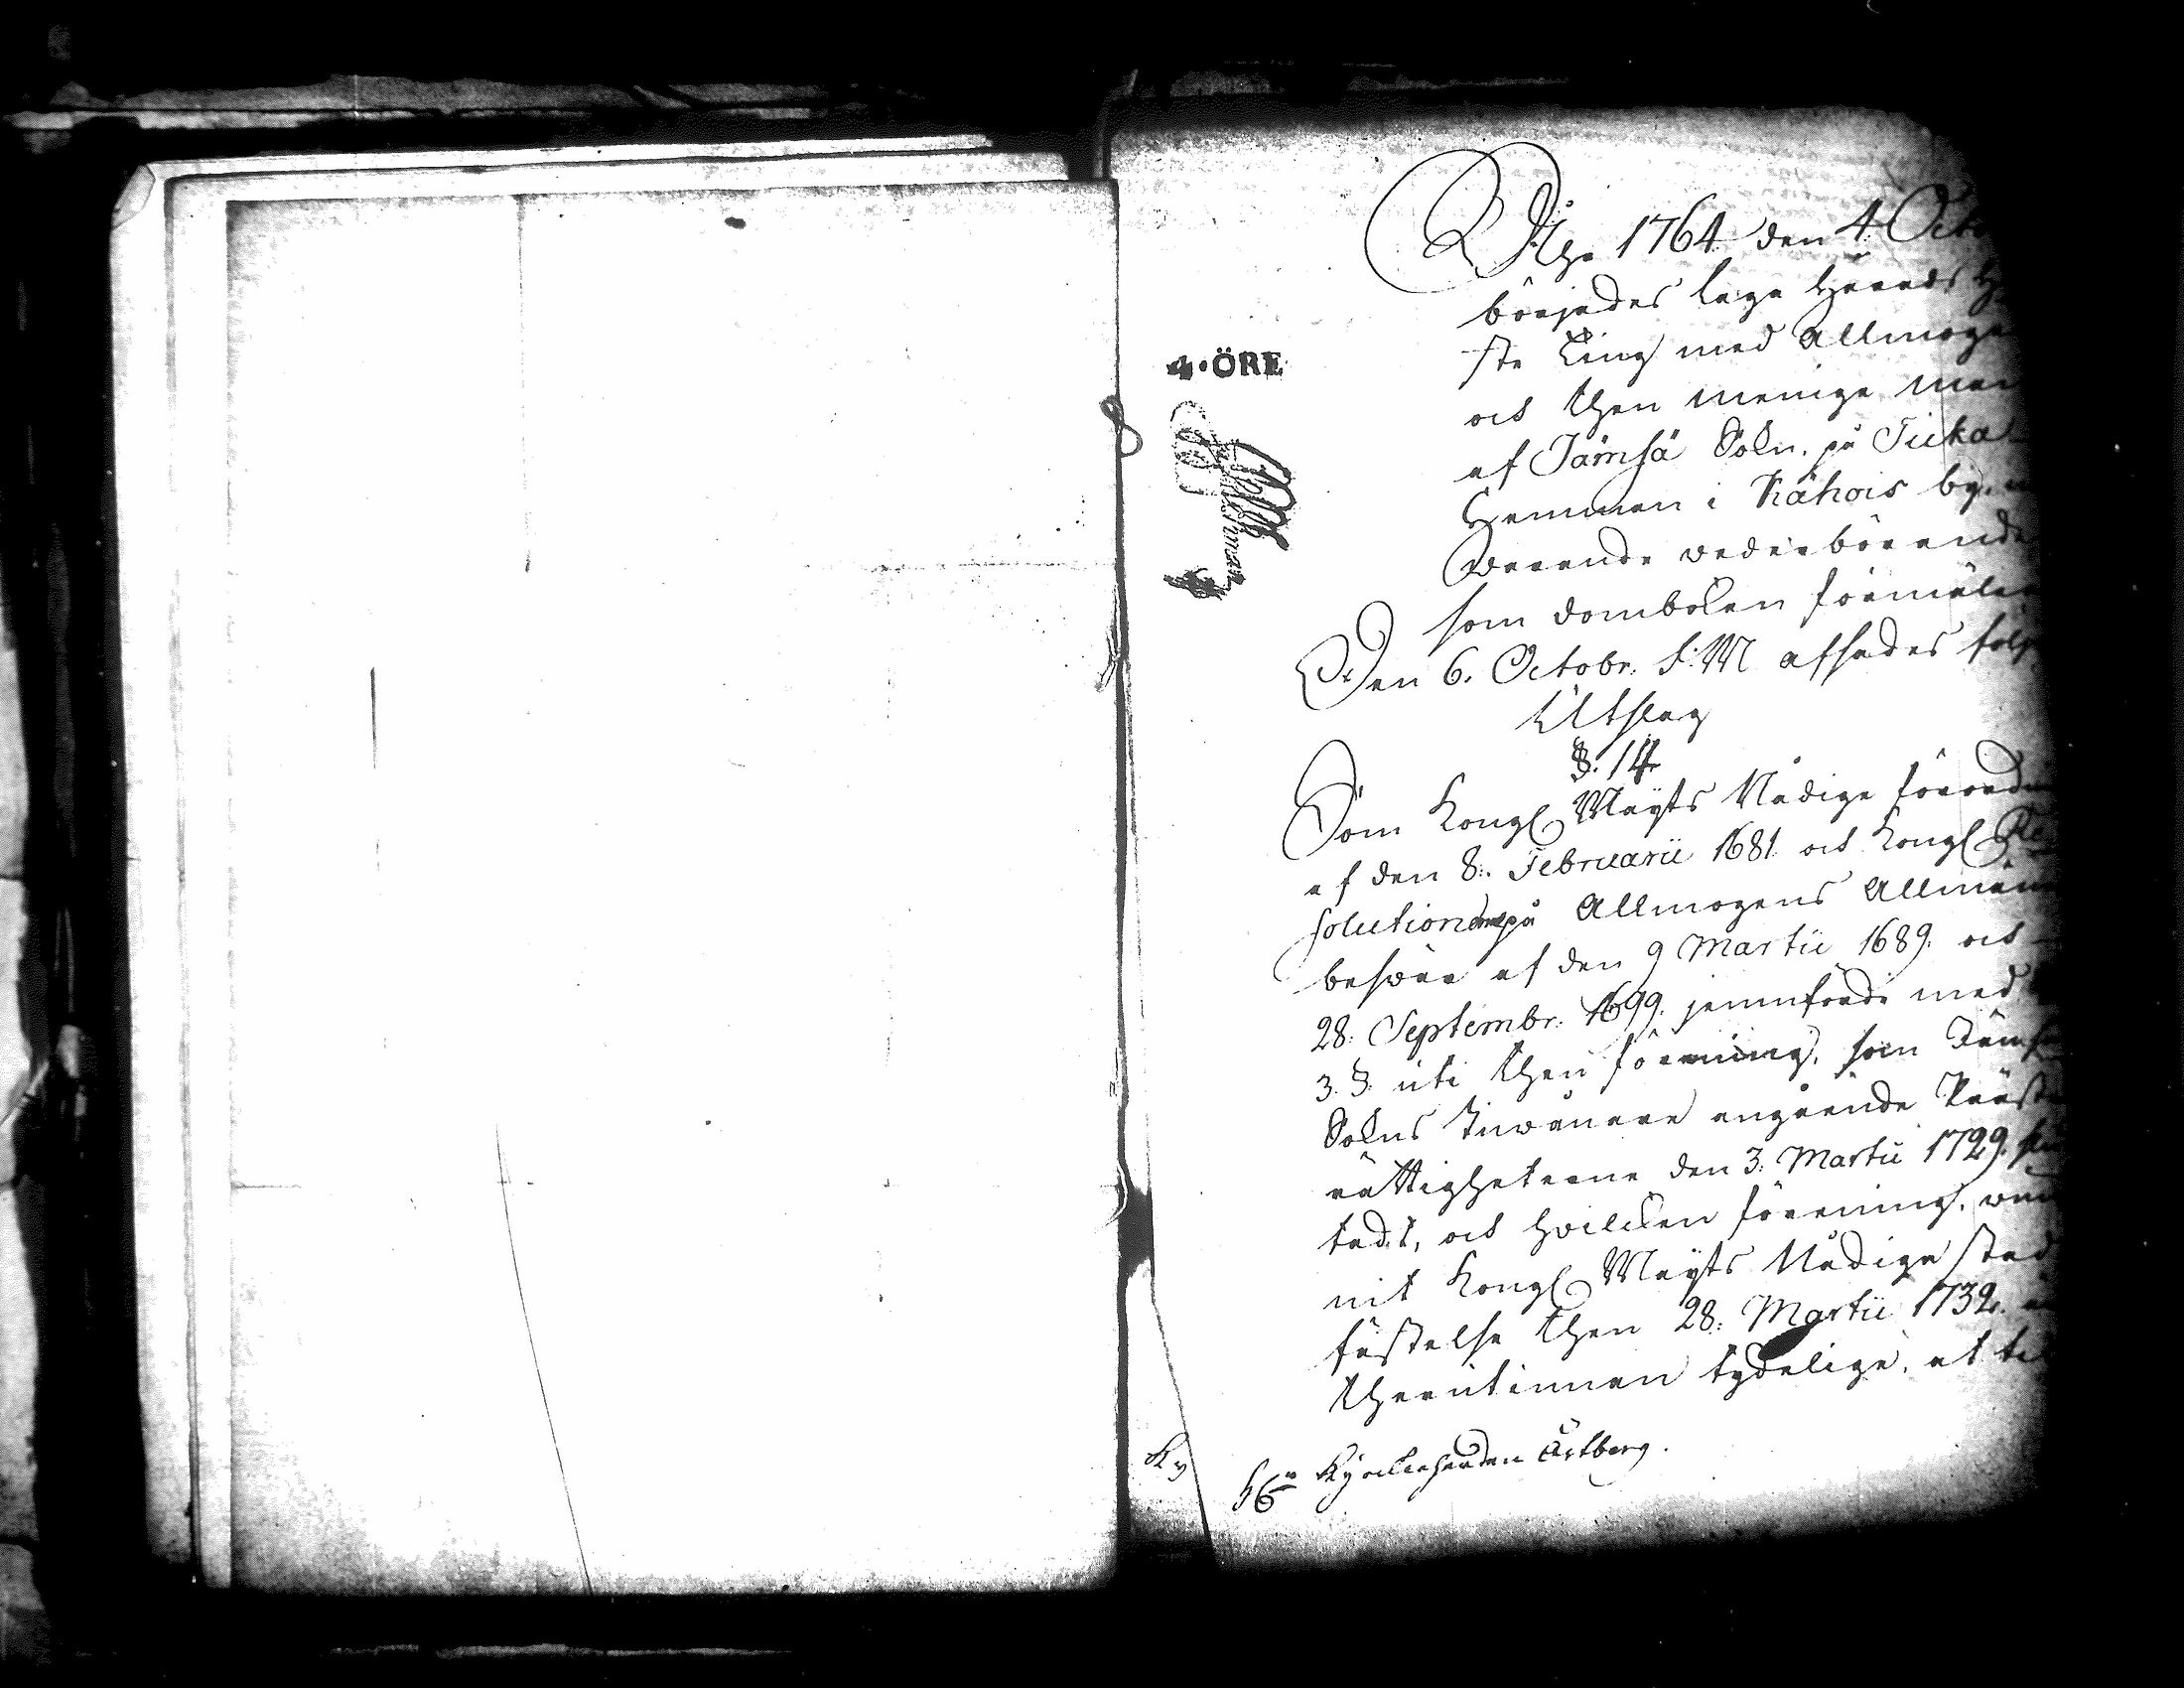 4. ÖRE
Åhr 1764 den 4 Octo
börjades laga Hærads H
ste Ting med Allmoge
och then menige man
af Jämsä Sokn. på Juka
Hemman i Kähois by.
warande wederbörande
som domboken förmäler
Den 6. Octobr. S: M afsades följ
Utslag
§. 14
Som Kongl Mayts Nådige förord
af den 8:. Februarii 1681 och Kongl Re
solutionerne på Allmogens Allmän
beswär af den 9 Martii 1689. och
28: Septembr. 1699. jemnförde med
3. §. uti then förening, som Jämsä
Sokns Inwånare angående Präste
rättigheterne den 3: Martii 1729.
tadt, och hvilcken förening, wun
nit Kongl Mayts Nådige stad
fästelse then 28: Martii 1732.
therutinnan tydelige, at
Ky
Kyrckioherden Ärtberg.